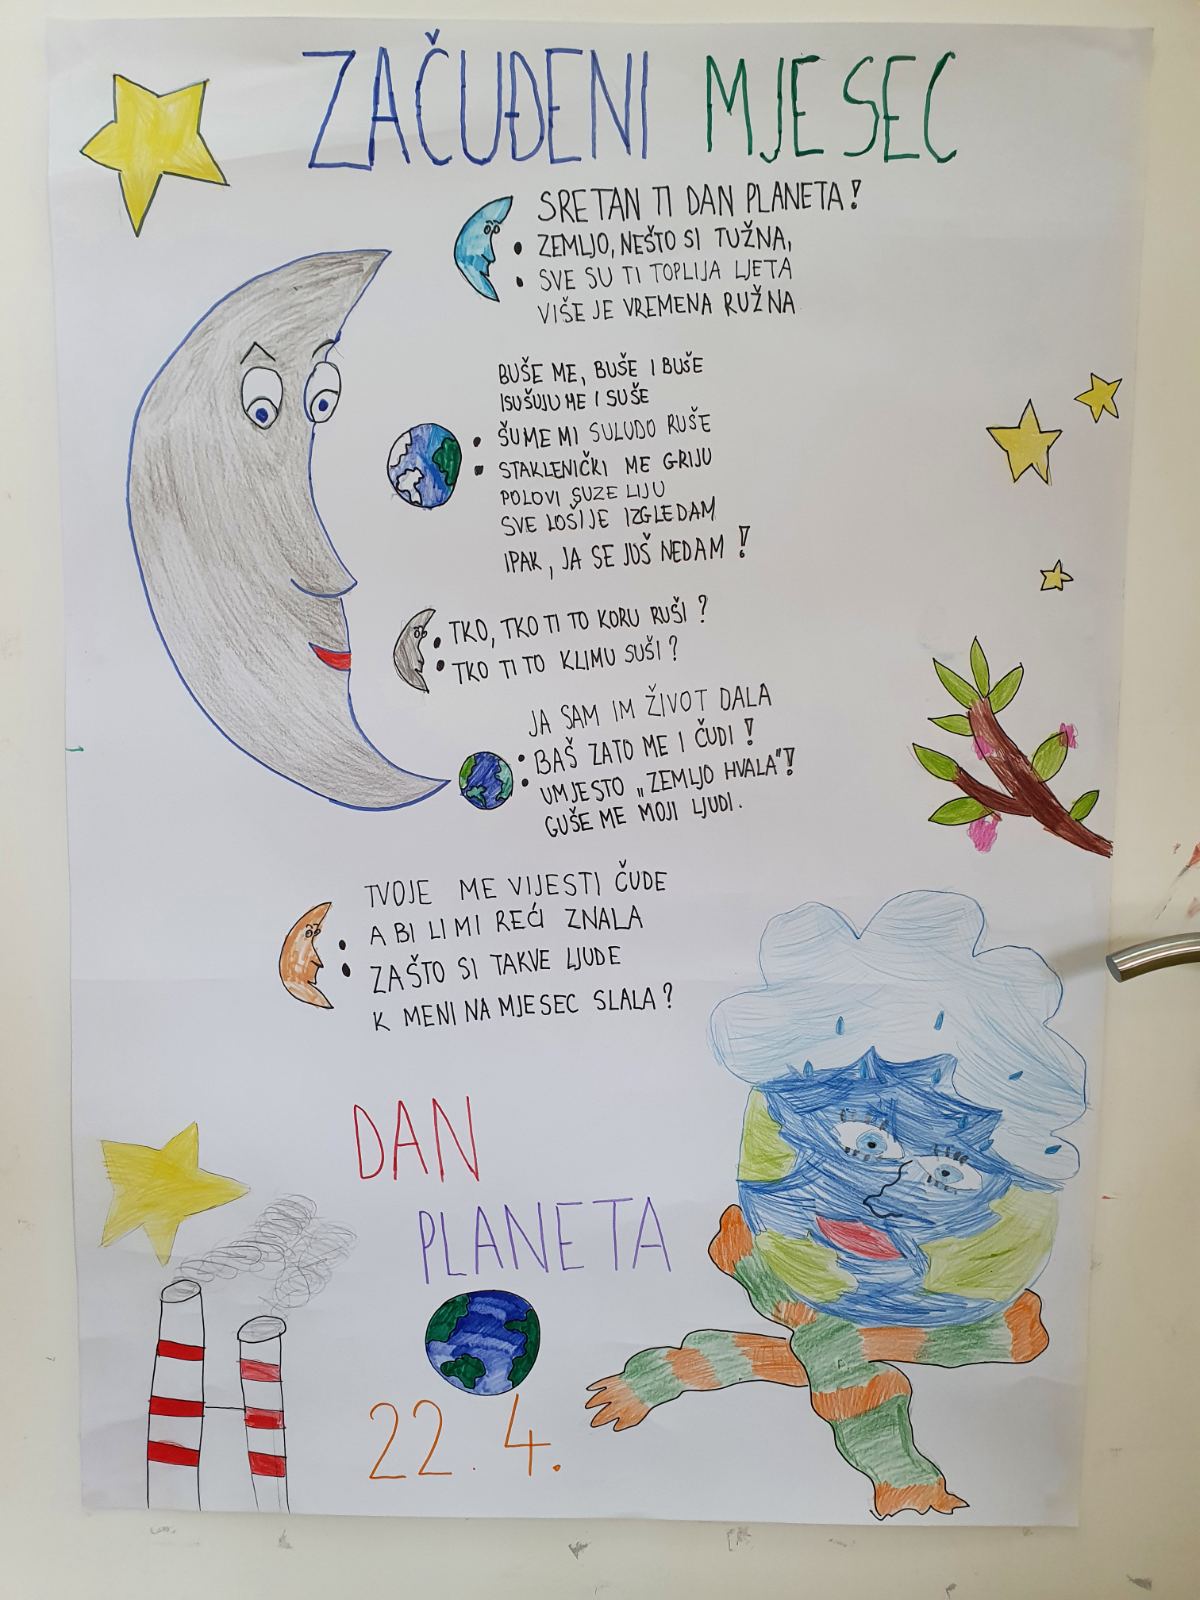 ZAČUĐENI MJESEC
SRETAN TI DAN PLANETA!
: ZEMLJO, NEŠTO SI TUŽNA,
SVE SU TI TOPLIJA LJETA
VIŠE JE VREMENA RUŽNA
BUŠE ME, BUŠE I BUŠE
ISUŠUJU ME I SUŠE
: ŠUME MI SULUDO RUŠE
STAKLENIČKI ME GRIJU
POLOVI SUZE LIJU
SVE LOŠIJE IZGLEDAM
IPAK, JA SE JUŠ NEDAM!
: TKO, TKO TI TO KORU RUŠI?
TKO TI TO KLIMU SUŠI?
JA SAM IM ŽIVOT DALA
: BAŠ ZATO ME I ČUDI!
UMJESTO „ZEMLJO HVALA"!
GUŠE ME MOJI LJUDI.
TVOJE ME VIJESTI ČUDE
: A BI LI MI REĆI ZNALA
ZAŠTO SI TAKVE LJUDE
K MENI NA MJESEC SLALA?
DAN
PLANETA
22.4.